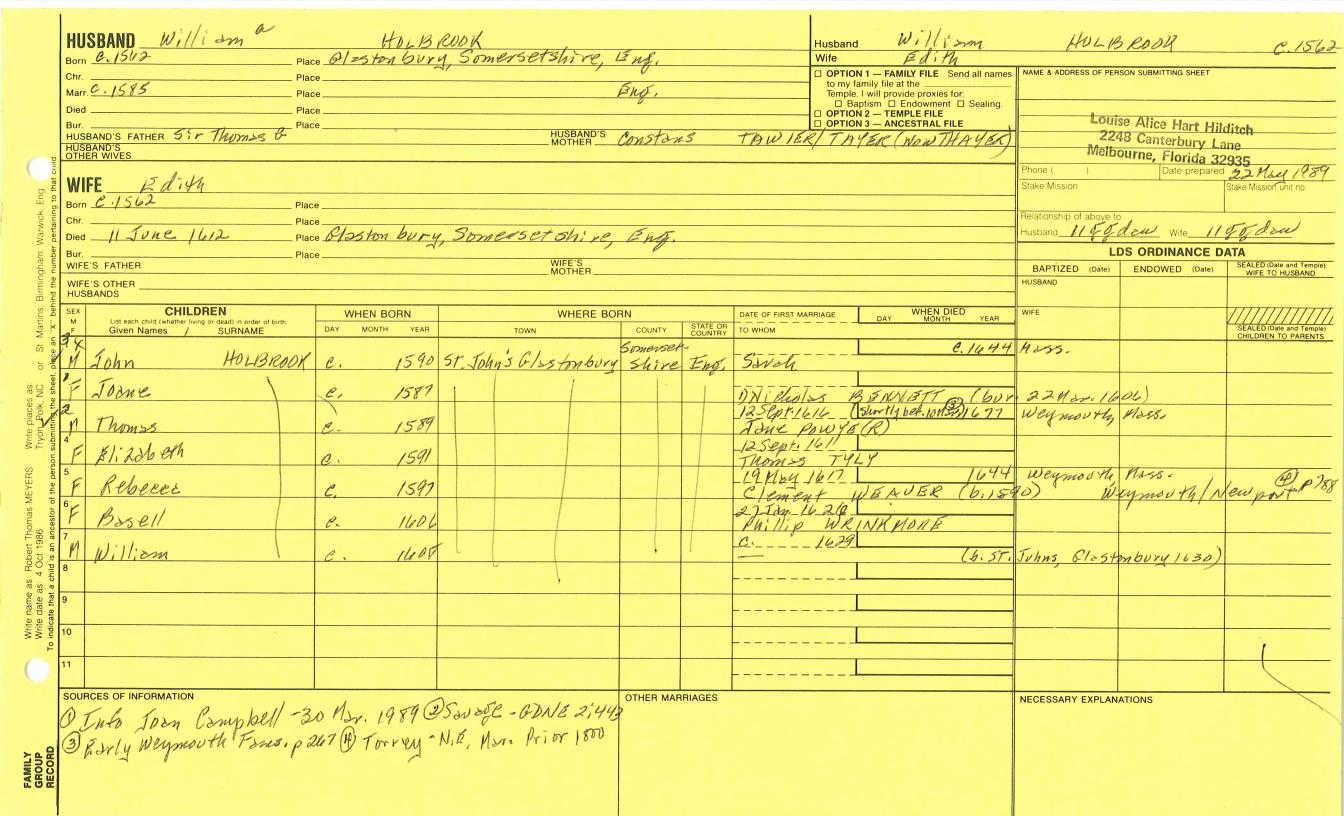 HUSBAND William a HOLBROOK
Born c.1562 Place Glastonbury, Somersetshire, Eng.
Chr. Place
Marr. c.1585 Place Eng.
Died Place
Bur. Place
HUSBAND'S FATHER Sir Thomas G HUSBAND'S MOTHER Constans TAWIER/TAYER (NOW THAYER)
HUSBAND'S OTHER WIVES
Husband William HOLBROOK c.1562
Wife Edith
☐ OPTION 1 — FAMILY FILE Send all names
to my family file at the
Temple. I will provide proxies for:
☐ Baptism ☐ Endowment ☐ Sealing.
☐ OPTION 2 — TEMPLE FILE
☐ OPTION 3 — ANCESTRAL FILE
NAME & ADDRESS OF PERSON SUBMITTING SHEET
Louise Alice Hart Hilditch
2248 Canterbury Lane
Melbourne, Florida 32935
Phone ( ) Date prepared 22 May 1989
Stake Mission Stake Mission unit no.
Relationship of above to
Husband 11 ggdau Wife 11 ggdau
WIFE Edith
Born c.1562 Place
Chr. Place
Died 11 June 1612 Place Glastonbury, Somersetshire, Eng.
Bur. Place
WIFE'S FATHER WIFE'S MOTHER
WIFE'S OTHER HUSBANDS
LDS ORDINANCE DATA
BAPTIZED (Date) ENDOWED (Date) SEALED (Date and Temple) WIFE TO HUSBAND
HUSBAND
WIFE
SEALED (Date and Temple) CHILDREN TO PARENTS
SEX M F
CHILDREN
List each child (whether living or dead) in order of birth.
Given Names / SURNAME
WHEN BORN
DAY MONTH YEAR
WHERE BORN
TOWN COUNTY STATE OR COUNTRY
DATE OF FIRST MARRIAGE
TO WHOM
WHEN DIED
DAY MONTH YEAR
M John HOLBROOK c. 1590 St. John's Glastonbury Somerset-shire Eng. Sarah c.1644 Mass.
F Joane c. 1587 Nicholas BENNETT (bur. 22 Mar. 1606)
2 M Thomas c. 1589 12 Sept. 1616 (shortly bef. ③ 1677 Weymouth, Mass.
Jane POWYE(R)
4 F Elizabeth c. 1591 12 Sept. 161
Thomas TYLY
5 F Rebecca c. 1597 19 May 1617 1644 Weymouth, Mass.
Clement WEAVER (b.1590) Weymouth/Newport ④ p788
6 F Basell c. 1606 27 Jan. 1626
Phillip WRINKMORE
7 M William c. 1608 c. 1629
(b. St. Johns, Glastonbury 1630)
8
9
10
11
SOURCES OF INFORMATION
① Info Joan Campbell - 30 Mar. 1989 ② Savage - GDNE 2:443
③ Early Weymouth Fams. p 267 ④ Torrey - N.E. Marr. Prior 1800
OTHER MARRIAGES
NECESSARY EXPLANATIONS
FAMILY GROUP RECORD
Write name as: Robert Thomas MEYERS Write places as Tryon, Polk, NC or St Martins, Birmingham, Warwick, Eng
Write date as 4 Oct 1986
To indicate that a child is an ancestor of the person submitting the sheet, place an "X" behind the number pertaining to that child.